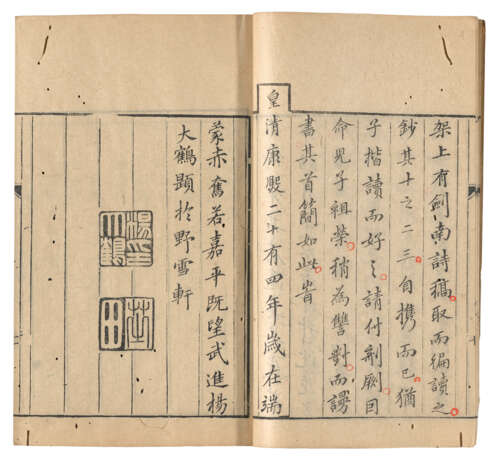 架上有劍南詩稿取而編讀之
鈔其十之二三自携而已猶
子揩讀而好之請付剞劂囙
命兒子祖榮稍為讐對而謬
書其首簡如此旹
皇清康熙二十有四年歲在端
蒙赤奮若嘉平既望武進楊
大鶴題於野雪軒
楊印大鶴
芝田